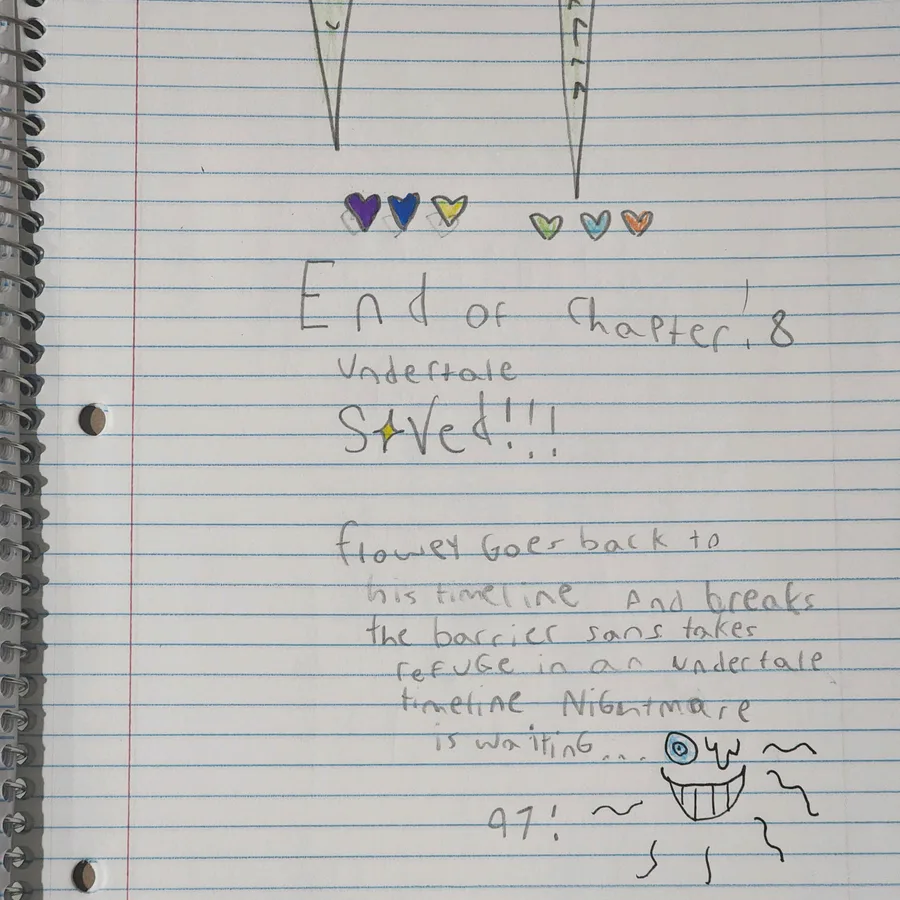 End of Chapter! 8
Undertale
Saved!!!
flowey Goes back to
his timeline And breaks
the barrier sans takes
refuGe in an undertale
timeline NiGhtmare
is waitinG...
97!